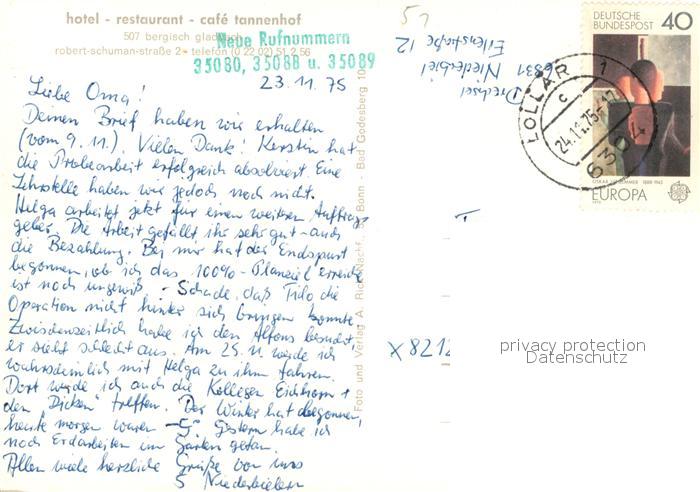 hotel - restaurant - café tannenhof
507 bergisch gladbach
robert-schuman-straße 2 - telefon (0 22 02) 51 2 56
Neue Rufnummern
35080, 35088 u. 35089
23.11.75
Liebe Oma!
Deinen Brief haben wir erhalten
(vom 9.11.). Vielen Dank! Kerstin hat
die Probearbeit erfolgreich absolviert. Eine
Lehrstelle haben wir jedoch noch nicht.
Helga arbeitet jetzt für einen weitren Auftrag-
geber. Die Arbeit gefällt ihr sehr gut - auch
die Bezahlung. Bei mir hat der Endspurt
begonnen, ob ich das 100% - Planziel erreiche
ist noch ungewiß - Schade, daß Tilo die
Operation nicht hinter sich bringen konnte
Zwischenzeitlich habe ich den Alfons besucht
er sieht schlecht aus. Am 25.11. werde ich
wahrscheinlich mit Helga zu ihm fahren.
Dort werde ich auch die Kollegen Eichhorn +
den "Dicken" treffen. Der Winter hat begonnen,
heute morgen waren -5°. Gestern habe ich
noch Erdarbeiten im Garten getan.
Allen viele herzliche Grüße von uns
5 Niederbielern
Foto und Verlag A. Rich. Nachf., Bonn - Bad Godesberg 10
51
Drechsel
6331 Niederbiel
Eilenstraße 12
DEUTSCHE
BUNDESPOST
40
OSKAR SCHLEMMER 1888-1943
EUROPA
1975
LOLLAR 1
c
24.11.75-17
6304
X 8212
privacy protection
Datenschutz